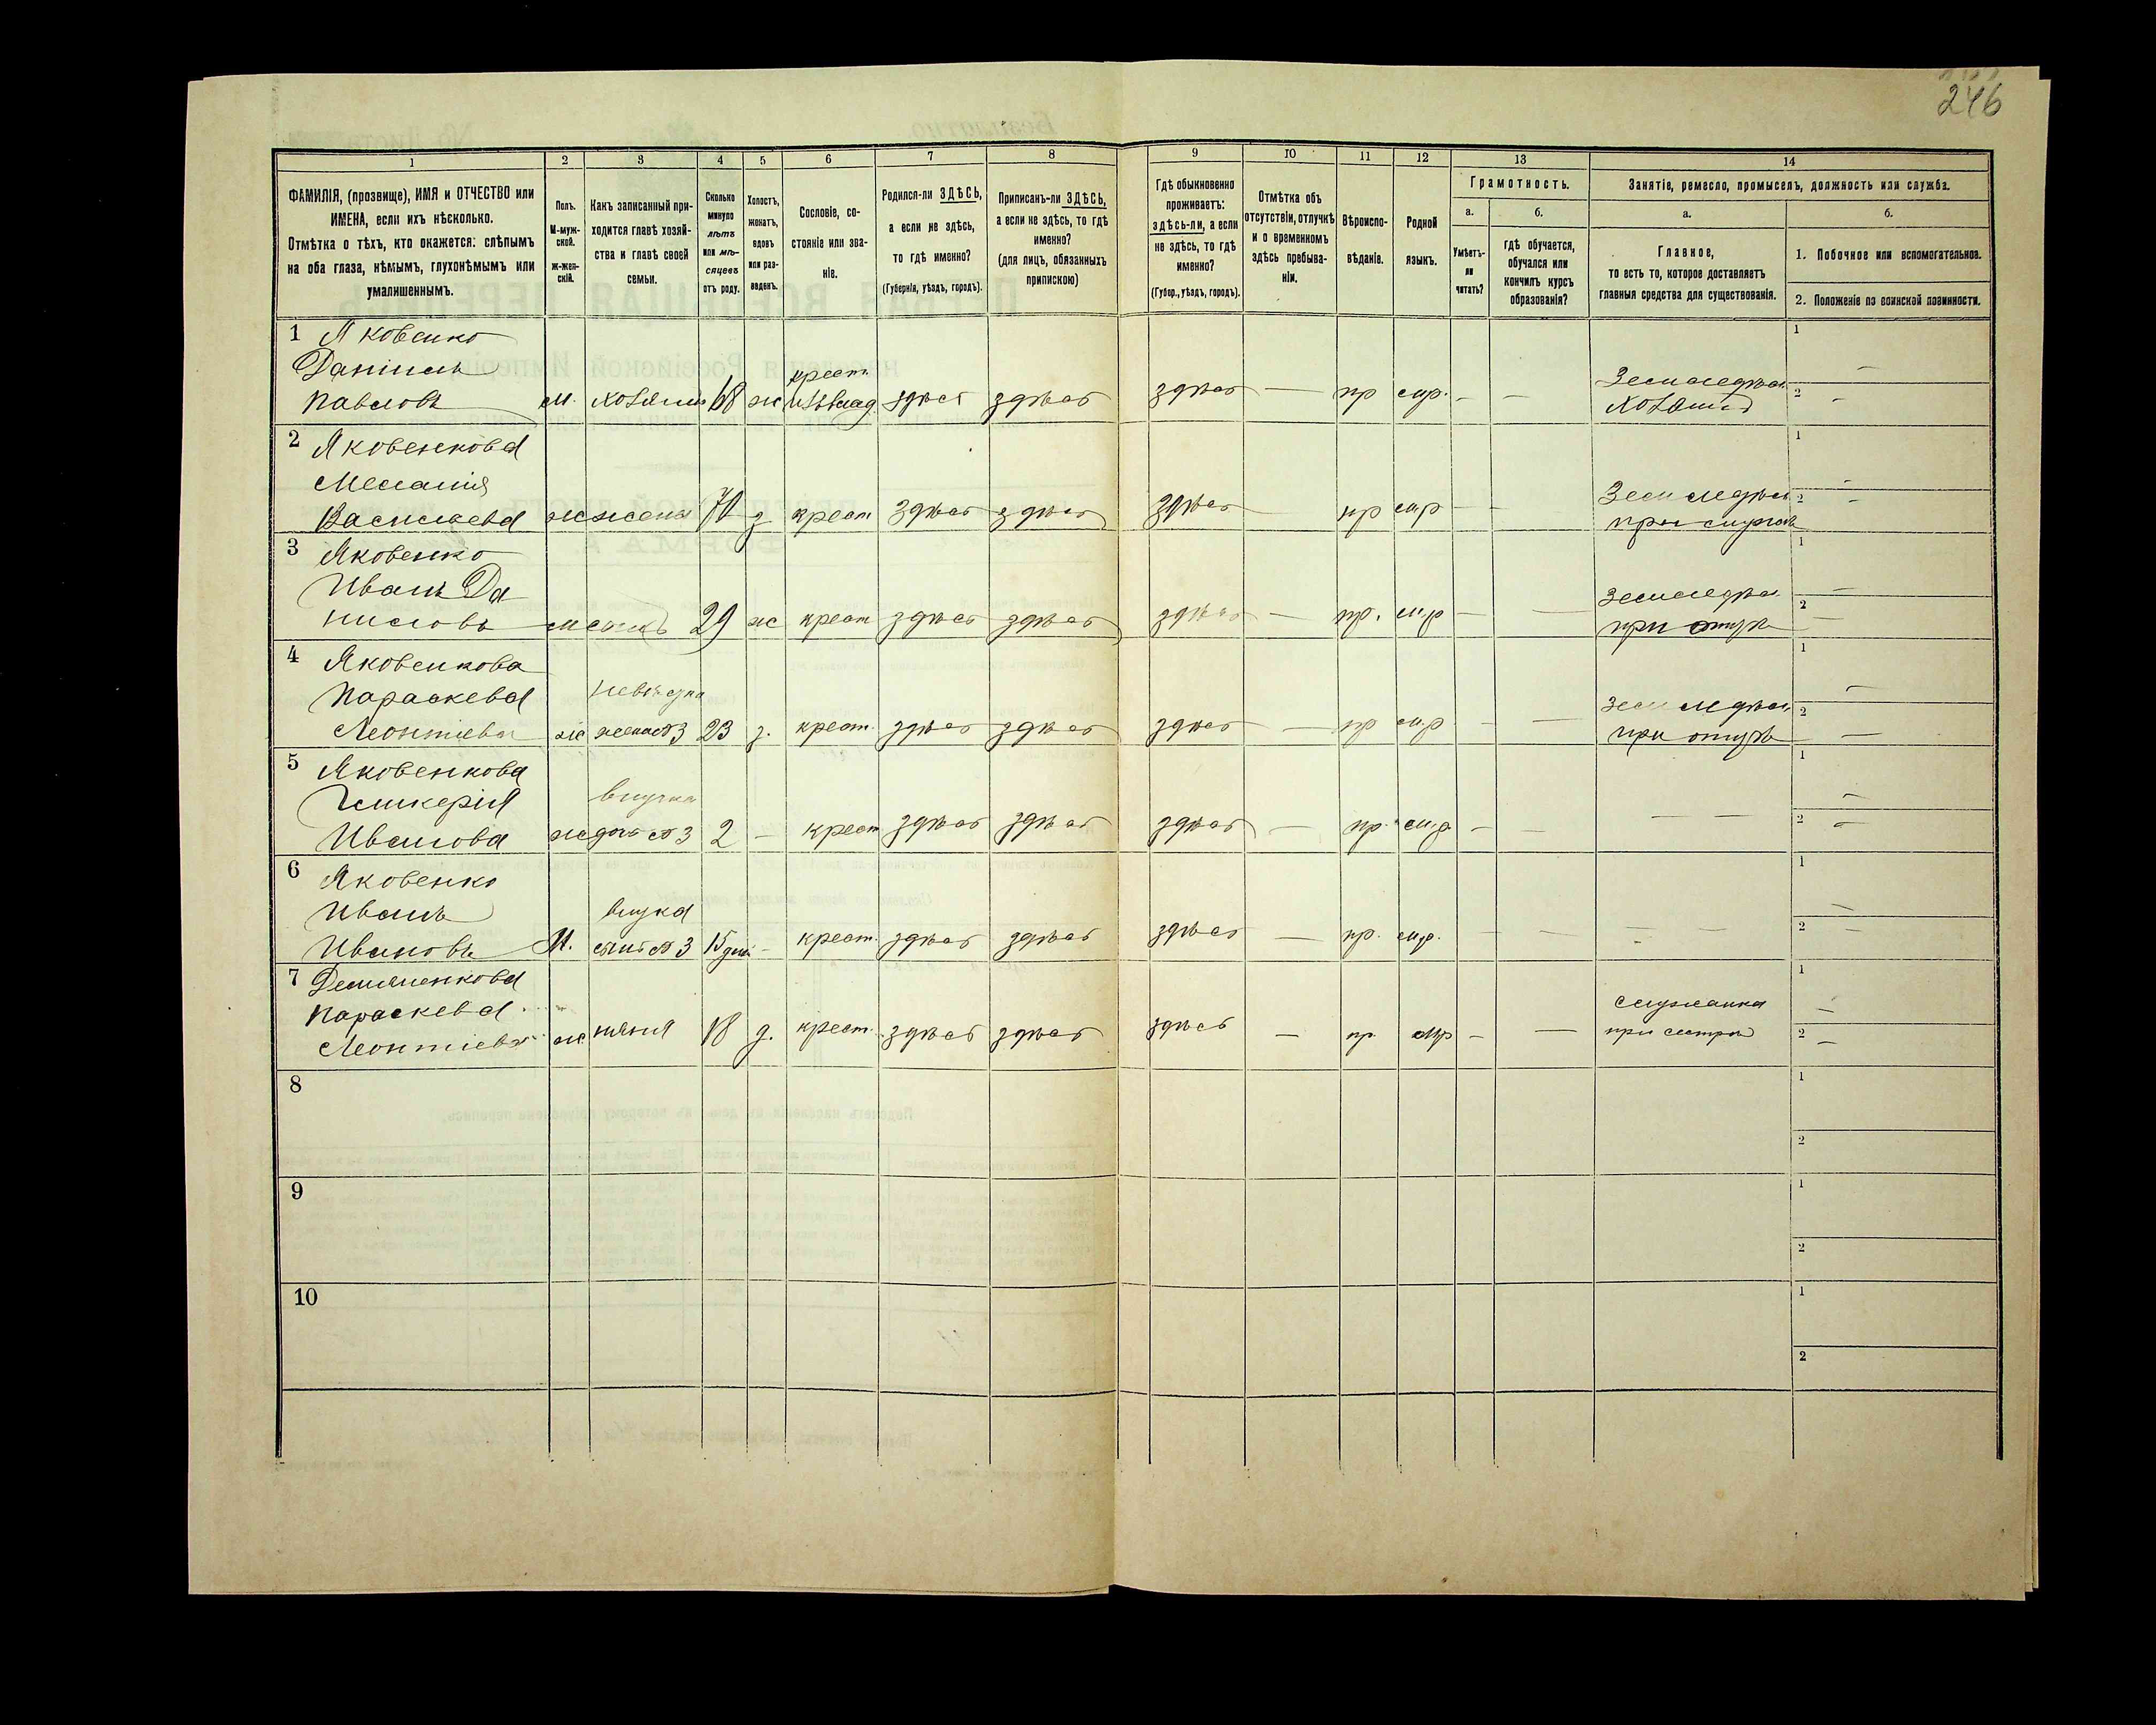 246
1 2 3 4 5 6 7 8 9 10 11 12 13 14
ФАМИЛІЯ, (прозвище), ИМЯ и ОТЧЕСТВО или
ИМЕНА, если ихъ нѣсколько.
Отмѣтка о тѣхъ, кто окажется: слѣпымъ
на оба глаза, нѣмымъ, глухонѣмымъ или
умалишеннымъ.
Полъ.
М-муж-
ской.
ж-жен-
скій.
Какъ записанный при-
ходится главѣ хозяй-
ства и главѣ своей
семьи.
Сколько
минуло
лѣтъ
или мѣ-
сяцевъ
отъ роду.
Холостъ,
женатъ,
вдовъ
или раз-
веденъ.
Сословіе, со-
стояніе или зва-
ніе.
Родился-ли ЗДѢСЬ,
а если не здѣсь,
то гдѣ именно?
(Губернія, уѣздъ, городъ).
Приписанъ-ли ЗДѢСЬ,
а если не здѣсь, то гдѣ
именно?
(для лицъ, обязанныхъ
припискою)
Гдѣ обыкновенно
проживаетъ:
здѣсь-ли, а если
не здѣсь, то гдѣ
именно?
(Губер., уѣздъ, городъ).
Отмѣтка объ
отсутствіи, отлучкѣ
и о временномъ
здѣсь пребыва-
ніи.
Вѣроиспо-
вѣданіе.
Родной
языкъ.
Грамотность.
а.
Умѣетъ-
ли
читать?
б.
гдѣ обучается,
обучался или
кончилъ курсъ
образованія?
Занятіе, ремесло, промыселъ, должность или служба.
а.
Главное,
то есть то, которое доставляетъ
главныя средства для существованія.
б.
1. Побочное или вспомогательное.
2. Положеніе по воинской повинности.
1 Яковенко
Даніилъ
Павловъ м. хозяинъ 68 ж крест. здѣсь здѣсь здѣсь — пр мр. — —
Земледѣл.
хозяинъ
1 —
2 —
2 Яковенкова
Меланія
Васильева ж жена 70 з крест здѣсь здѣсь здѣсь — пр мр — —
Земледѣл.
1 —
2 —
3 Яковенко
Иванъ Да
ниловъ м сынъ 29 ж крест здѣсь здѣсь здѣсь — пр. м.р — —
Земледѣл.
при отцѣ
1 —
2 —
4 Яковенкова
Параскева
Леонтіева
невѣстка
ж жена № 3 23 з. крест. здѣсь здѣсь здѣсь — пр м.р — —
Земледѣл.
при отцѣ
1 —
2 —
5 Яковенкова
Гликерія
Иванова
внучка
ж дочь № 3 2 — крест здѣсь здѣсь здѣсь — пр. м.р. — —
— —
1 —
2 —
6 Яковенко
Иванъ
Ивановъ
внукъ
М. сынъ № 3 15 дней — крест. здѣсь здѣсь здѣсь — пр. м.р. — —
— —
1 —
2 —
7 Демяненкова
Параскева
Леонтіева ж няня 18 д. крест. здѣсь здѣсь здѣсь — пр мр — —
служанка
при сестрѣ
1 —
2 —
8
1
2
9
1
2
10
1
2